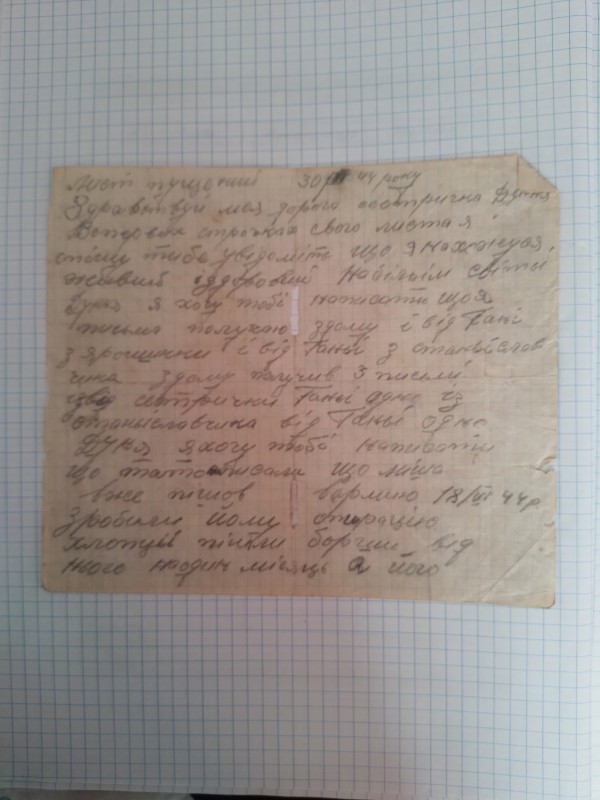 Лист пущений 30/VII 44 року
Здравствуй моя дорога сестричка Дуня
Вопервих строчках свого листа я
спішу тибе увідоміть що я нахожуся
живий іздоровий Набілім світы
Дуня я хочу тобі написати щоя
письма получаю здому і від Гані
з ярошинки і від Ганьі з станыслов
чика здому получив 3 письмі
від систрички Ганьі одно із
станыславчика від Ганьі одно
Дуня яхочу тобі написати
що тато писали що міша
вже пішов вармию 18/VI 44 р.
Зробили йому операцію
хлопцы пішли борше від
нього наодин місяць а його